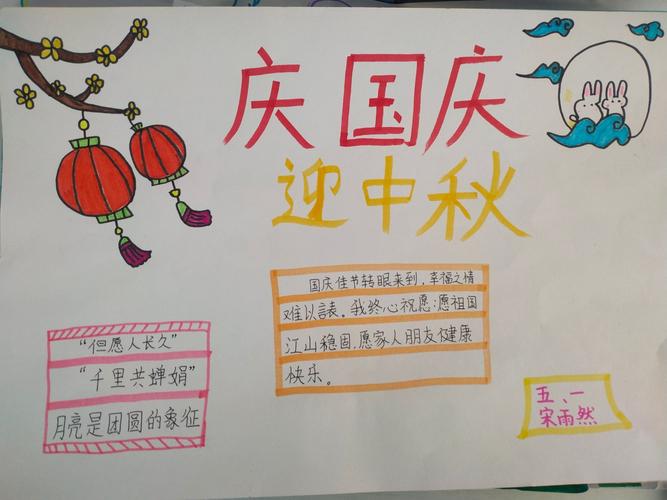 庆国庆
迎中秋
国庆佳节转眼来到，幸福之情
难以言表。我终心祝愿：愿祖国
江山稳固，愿家人朋友健康
快乐。
“但愿人长久”
“千里共蝉娟”
月亮是团圆的象征
五、一
宋雨然